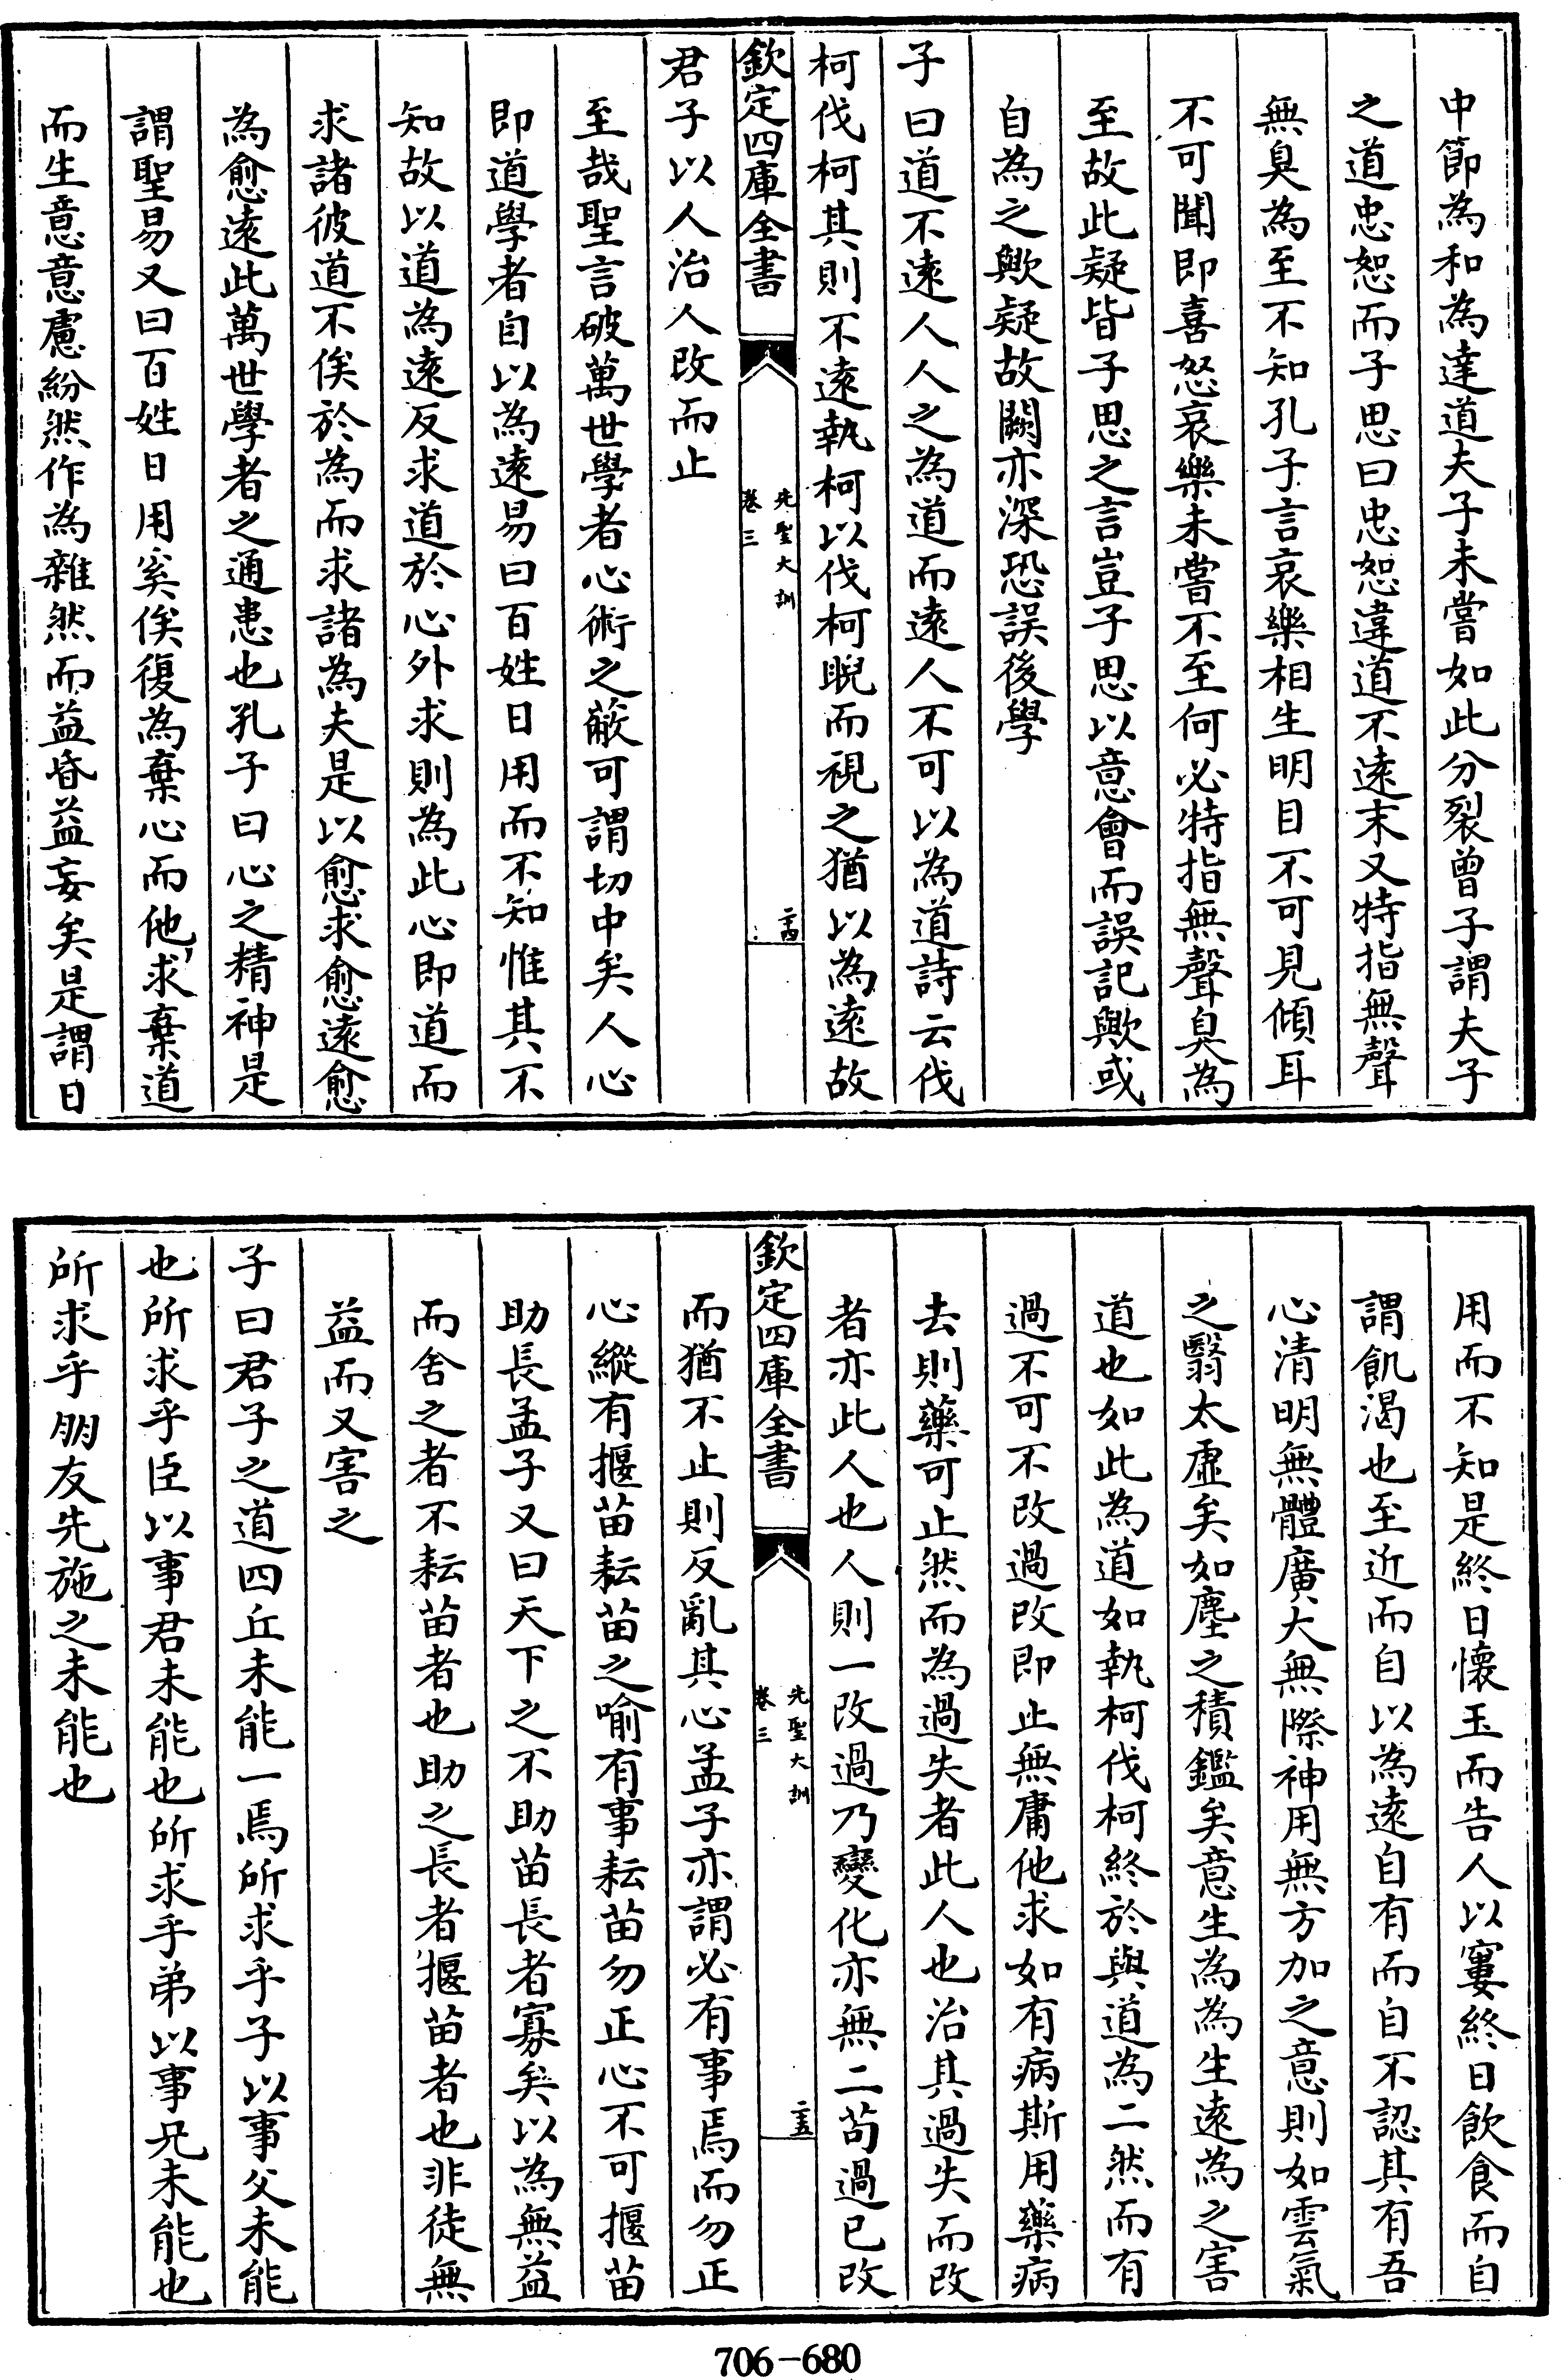 中節為和為達道夫子未嘗如此分裂曾子謂夫子
之道忠恕而子思曰忠恕違道不遠末又特指無聲
無臭為至不知孔子言哀樂相生明目不可見傾耳
不可聞即喜怒哀樂未嘗不至何必特指無聲臭為
至故此疑皆子思之言豈子思以意會而誤記歟或
自為之歟疑故闕亦深恐誤後學
子曰道不遠人人之為道而遠人不可以為道詩云伐
柯伐柯其則不遠執柯以伐柯睨而視之猶以為遠故
欽定四庫全書
先聖大訓
卷三
二十四
君子以人治人改而止
至哉聖言破萬世學者心術之蔽可謂切中矣人心
即道學者自以為遠易曰百姓日用而不知惟其不
知故以道為遠反求道於心外求則為此心即道而
求諸彼道不俟於為而求諸為夫是以愈求愈遠愈
為愈遠此萬世學者之通患也孔子曰心之精神是
謂聖易又曰百姓日用奚俟復為棄心而他求棄道
而生意意慮紛然作為雜然而益昏益妄矣是謂日
用而不知是終日懷玉而告人以窶終日飲食而自
謂飢渴也至近而自以為遠自有而自不認其有吾
心清明無體廣大無際神用無方加之意則如雲氣
之翳太虛矣如塵之積鑑矣意生為為生遠為之害
道也如此為道如執柯伐柯終於與道為二然而有
過不可不改過改即止無庸他求如有病斯用藥病
去則藥可止然而為過失者此人也治其過失而改
者亦此人也人則一改過乃變化亦無二苟過已改
欽定四庫全書
先聖大訓
卷三
二十五
而猶不止則反亂其心孟子亦謂必有事焉而勿正
心縱有揠苗耘苗之喻有事耘苗勿正心不可揠苗
助長孟子又曰天下之不助苗長者寡矣以為無益
而舍之者不耘苗者也助之長者揠苗者也非徒無
益而又害之
子曰君子之道四丘未能一焉所求乎子以事父未能
也所求乎臣以事君未能也所求乎弟以事兄未能也
所求乎朋友先施之未能也
706-680